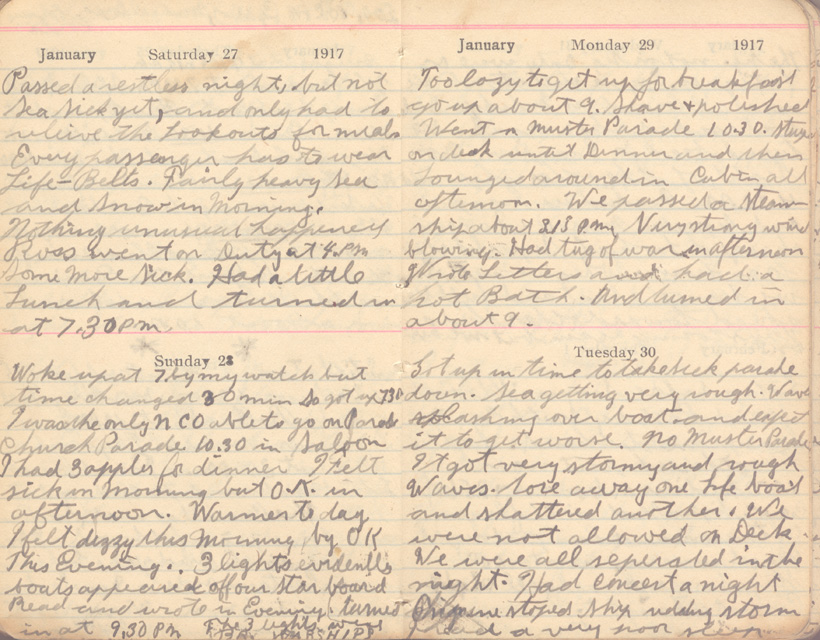 January Saturday 27 1917
Passed a restless night, but not
sea sick yet, and only had to
relieve the Lookouts for meals
Every passenger has to wear
Life-Belts. Fairly heavy sea
and snow in morning.
Nothing unusual happened
Ross went on Duty at 4. PM
some more sick. Had a little
Lunch and turned in
at 7.30 PM
Sunday 28
Woke up at 7 by my watch but
time changed 30 min so got up 730
I was the only N CO able to go on Parade
Church Parade 10.30 in Saloon
I had 3 apples for dinner I felt
sick in Morning but O.K. in
afternoon. Warmer to day
I felt dizzy this Morning by OK
This Evening. 3 lights evidently
boats appeared off our starboard
Read and wrote in Evening turned
in at 9,30 PM The 3 lights were
January Monday 29 1917
Too lazy to get up for breakfast
go up about 9. Shave + polished
Went on Muster Parade 10.30. Stayed
on deck until Dinner and then
Lounged around in Cabin all
afternoon. We passed a steam-
ship about 3.15 P.M, Very strong wind
blowing. Had tug of war in afternoon
Wrote Letters and had a
hot Bath. And turned in
about 9.
Tuesday 30
Got up in time to take sick parade
down. Sea getting very rough. Waves
splashing over boat and expect
it to get worse. No Muster Parade
It got very stormy and rough
Waves. tore away one life boat
and shattered another. We
were not allowed on Deck.
We were all seperated in the
night. Had concert a night
Engine stoped Ship storm
had a very poor